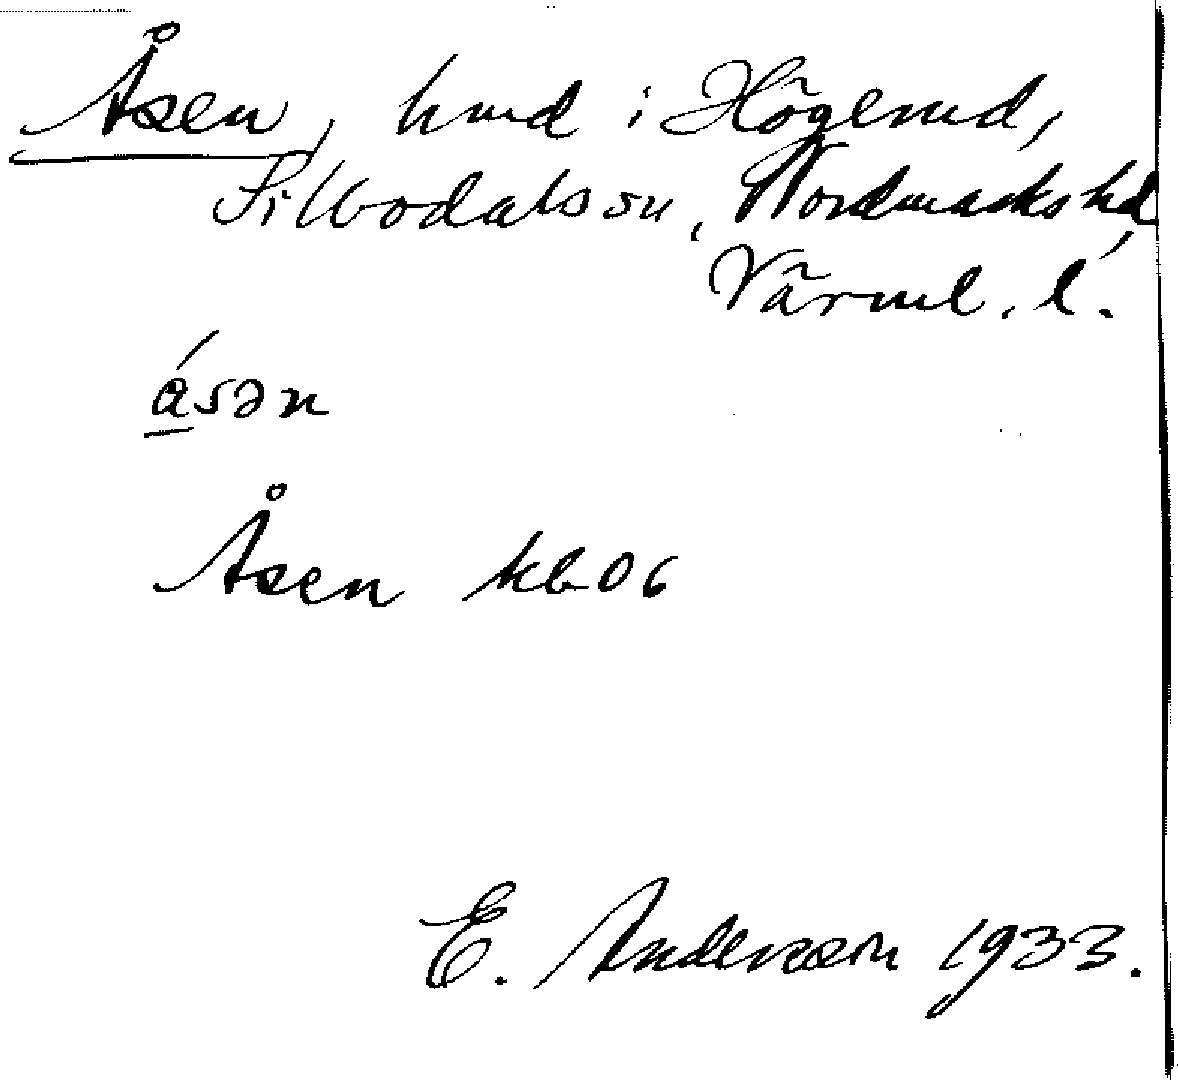 Åsen, hmd i Högerud,
Silbodals sn, Nordmarks hd,
Värml. l.
á̲sən
Åsen kb 06
E. Andersson 1933.